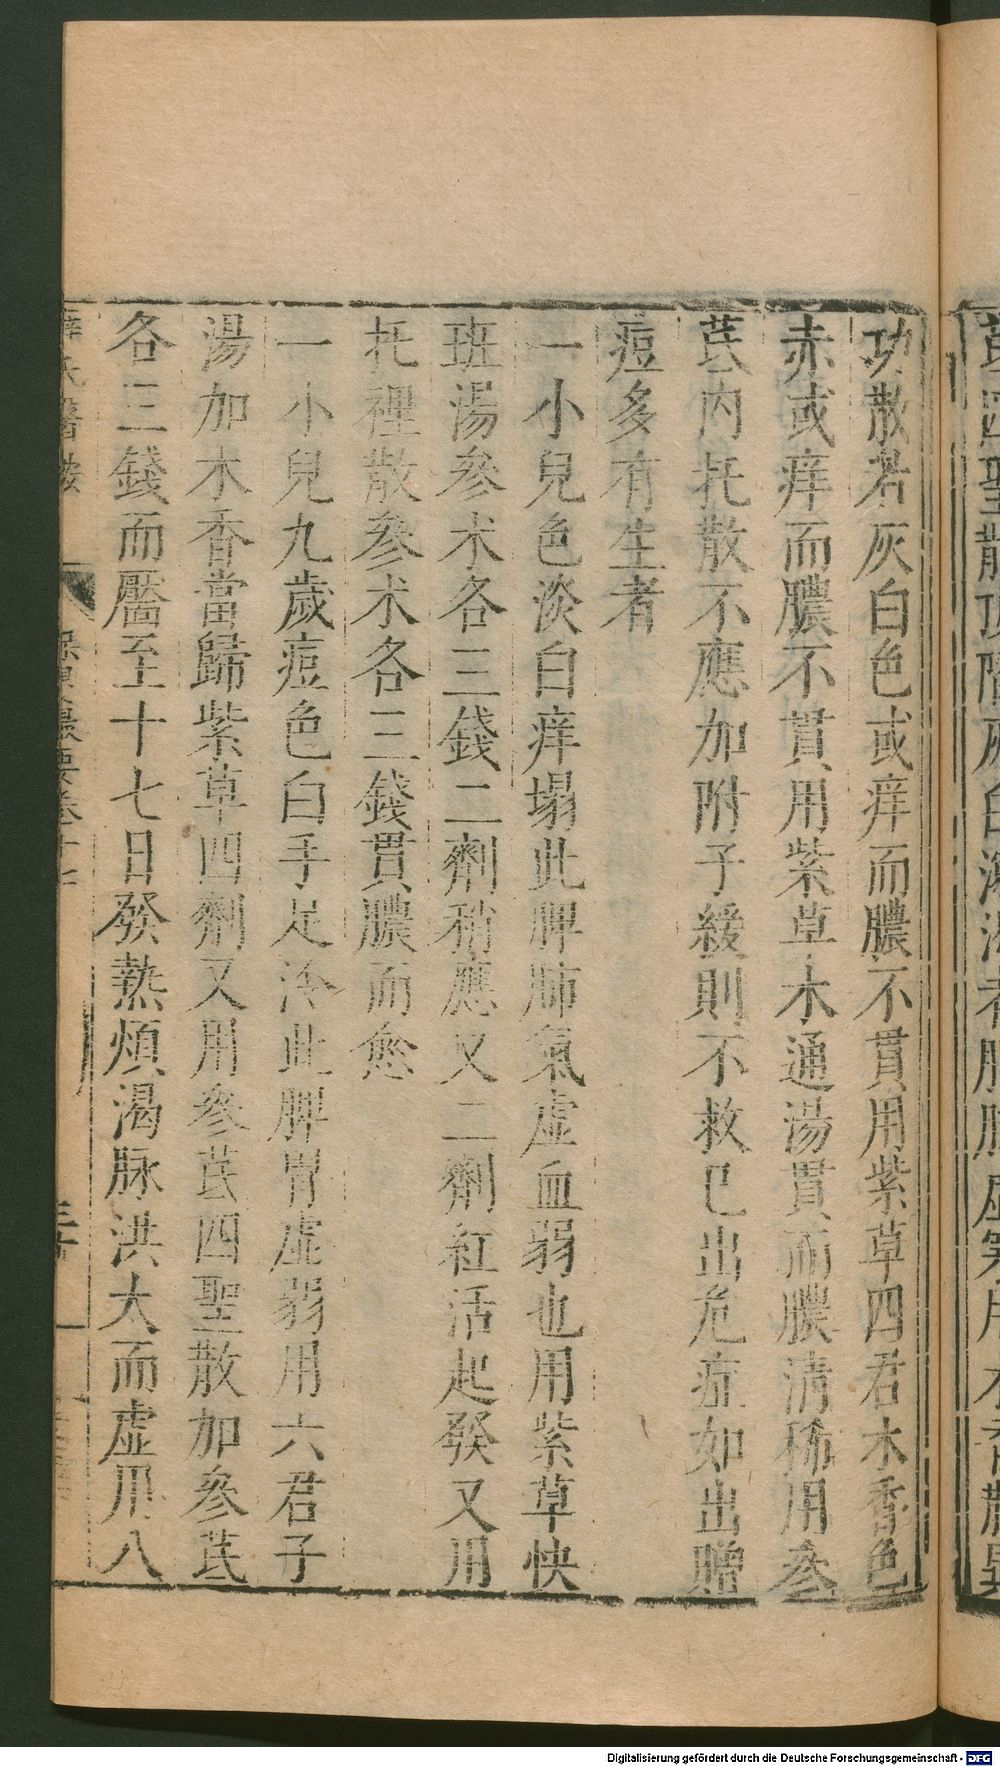 功散若灰白色或痒而膿不貫用紫草四君木香色
赤或痒而膿不貫用紫草木通湯貫而膿清稀用參
芪內托散不應加附子緩則不救巳出危症如出贈
痘多有生者
一小兒色淡白痒塌此脾肺氣虛血弱也用紫草快
班湯參朮各三錢二劑稍應又二劑紅活起發又用
托裡散參朮各三錢貫膿而愈
一小兒九歲痘色白手足冷此脾胃虛弱用六君子
湯加木香當歸紫草四劑又用參芪四聖散加參芪
各三錢而靨至十七日發熱煩渴脉洪大而虛用八
薛氏醫按 保嬰撮要卷十七
Digitalisierung gefördert durch die Deutsche Forschungsgemeinschaft - DFG